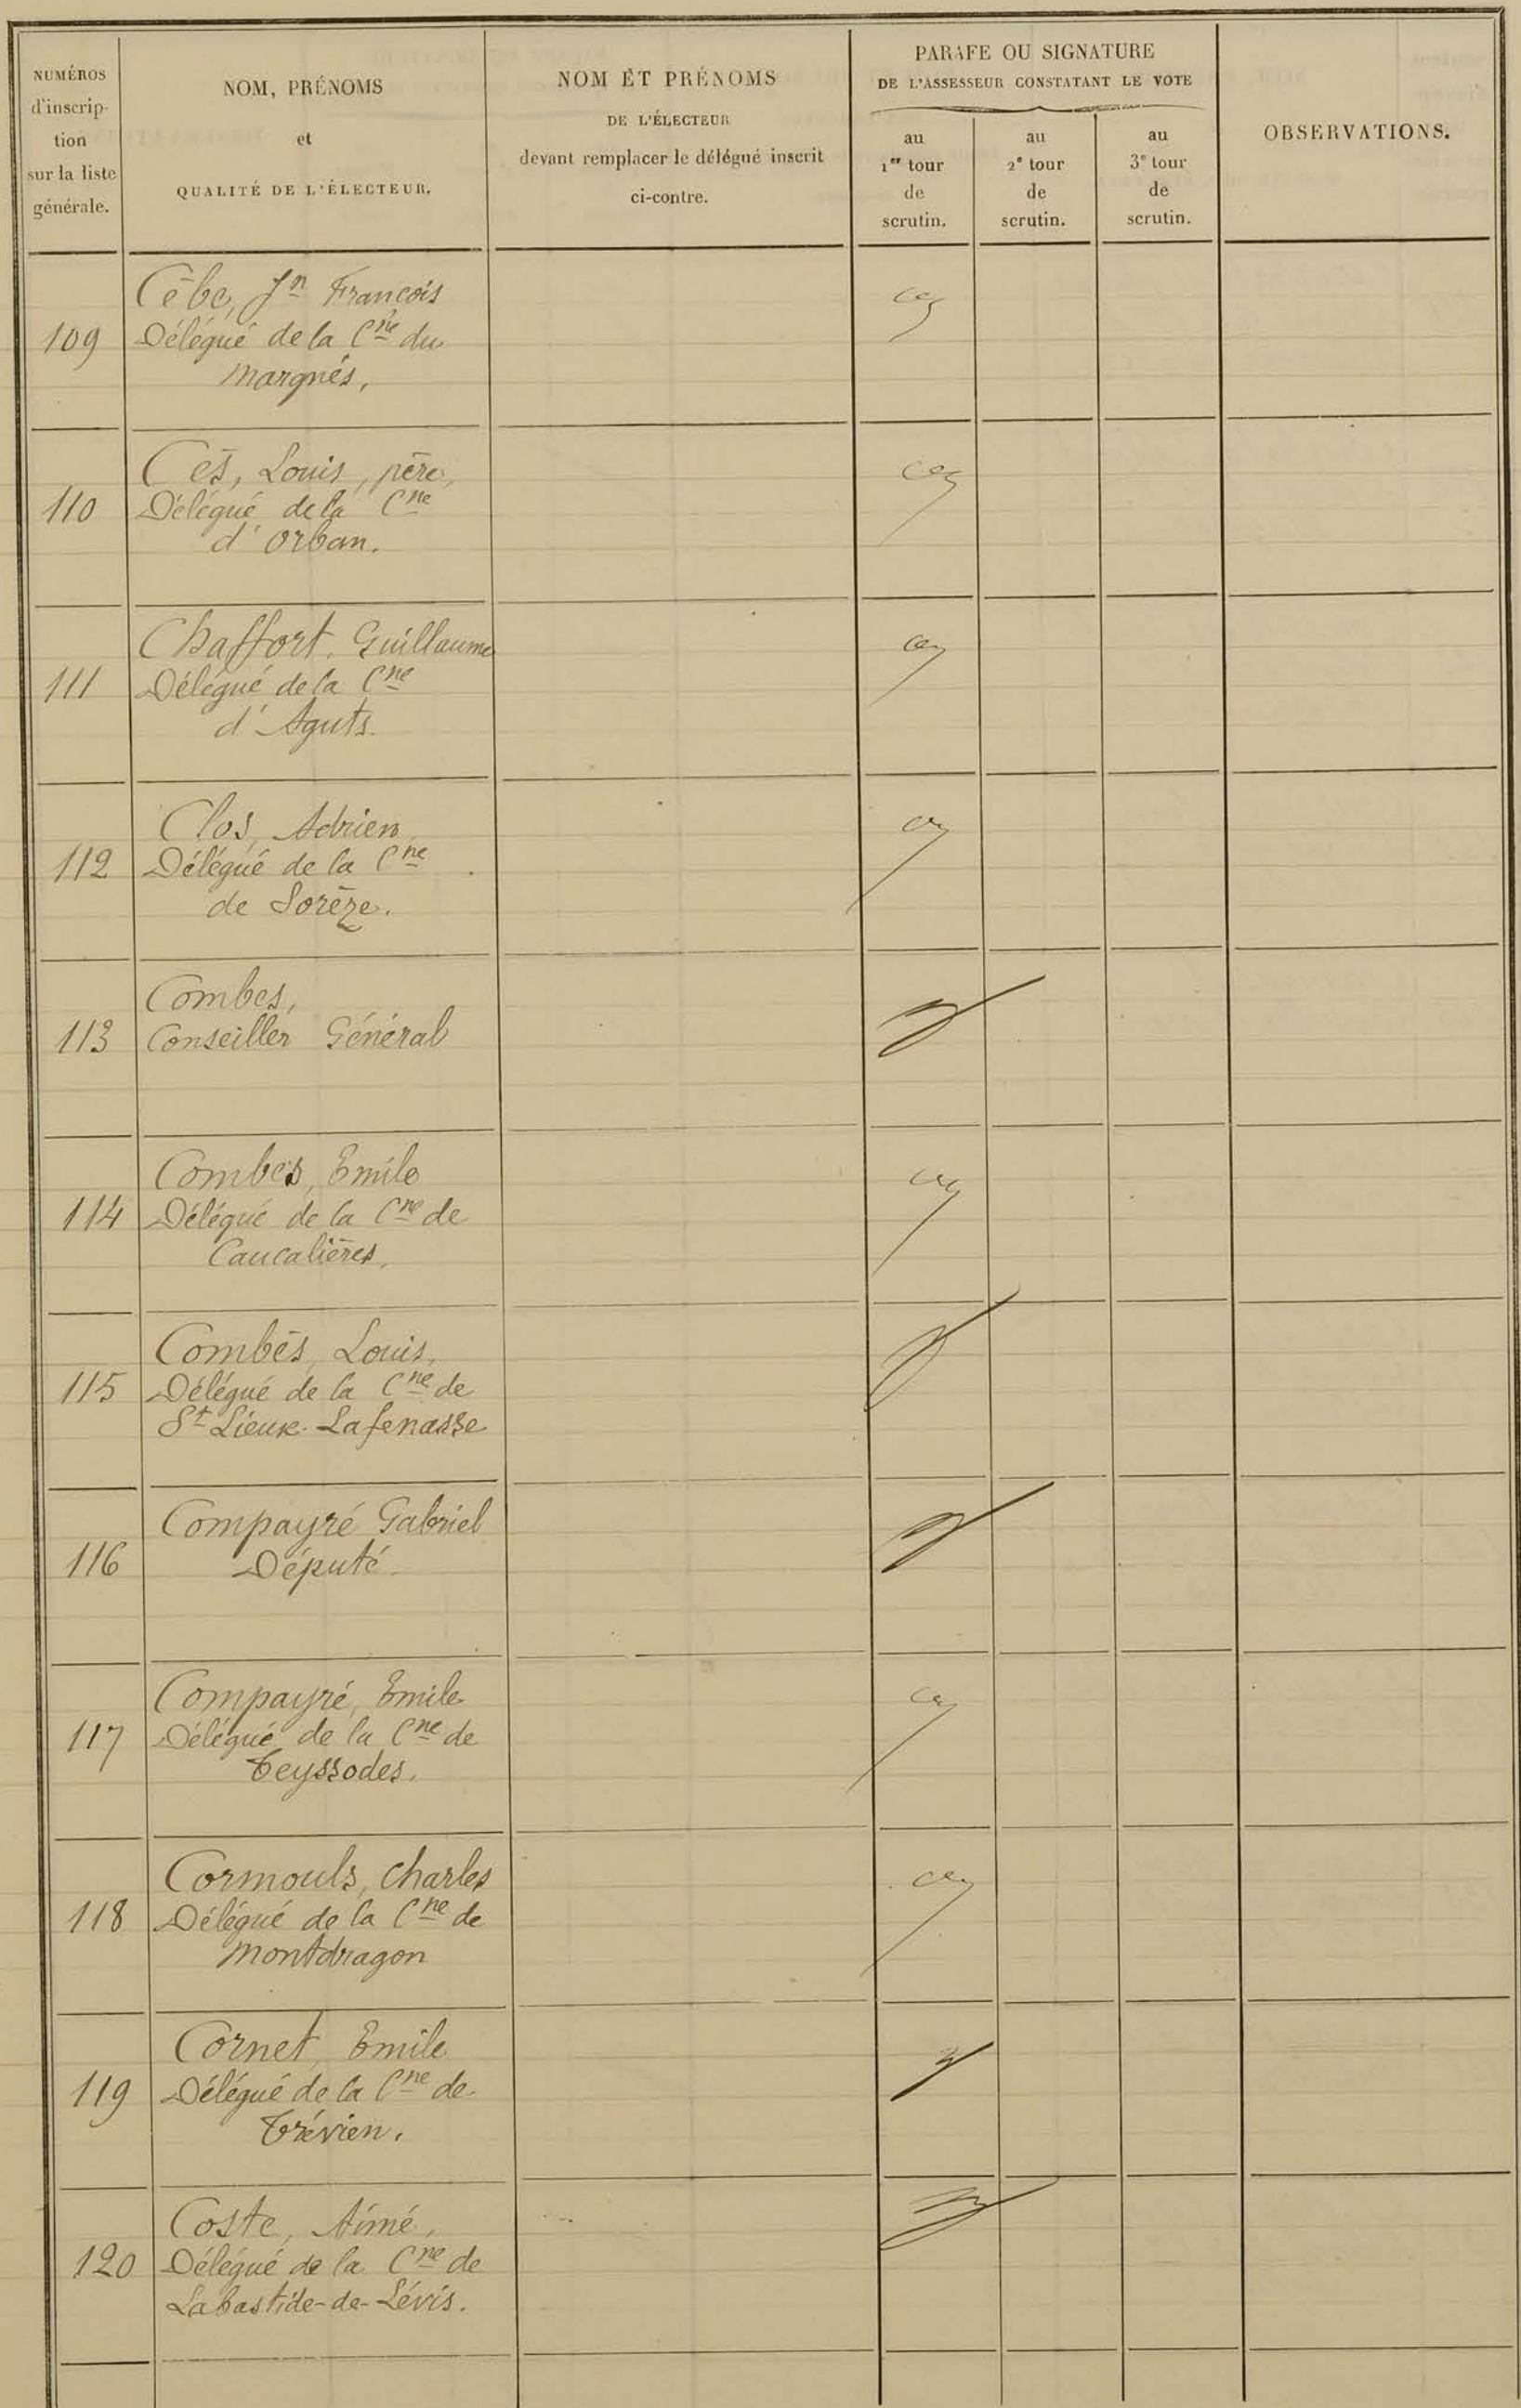 NUMÉROS
d'inscrip-
tion
sur la liste
générale.
NOM, PRÉNOMS
et
QUALITÉ DE L'ÉLECTEUR.
NOM ET PRÉNOMS
DE L'ÉLECTEUR
devant remplacer le délégué inscrit
ci-contre.
PARAFE OU SIGNATURE
DE L'ASSESSEUR CONSTATANT LE VOTE
au
1er tour
de
scrutin.
au
2e tour
de
scrutin.
au
3e tour
de
scrutin.
OBSERVATIONS.
109
Cèbe, Jn François
Délégué de la Cne du
Margnés,
110
Cès, Louis, père,
Délégué de la Cne
d'Orban.
111
Chaffort, Guillaume
Délégué de la Cne
d'Aguts.
112
Clos, Adrien
Délégué de la Cne
de Sorèze.
113
Combes,
Conseiller Général
114
Combes, Emile
Délégué de la Cne de
Caucalières,
115
Combès, Louis,
Délégué de la Cne de
St Lieux-Lafenasse
116
Compayré Gabriel
Député
117
Compayré, Emile
Délégué de la Cne de
Teyssodes.
118
Cormouls, Charles
Délégué de la Cne de
Montdragon
119
Cornet, Emile
Délégué de la Cne de
Trévien.
120
Coste, Aimé,
Délégué de la Cne de
Labastide-de-Lévis.